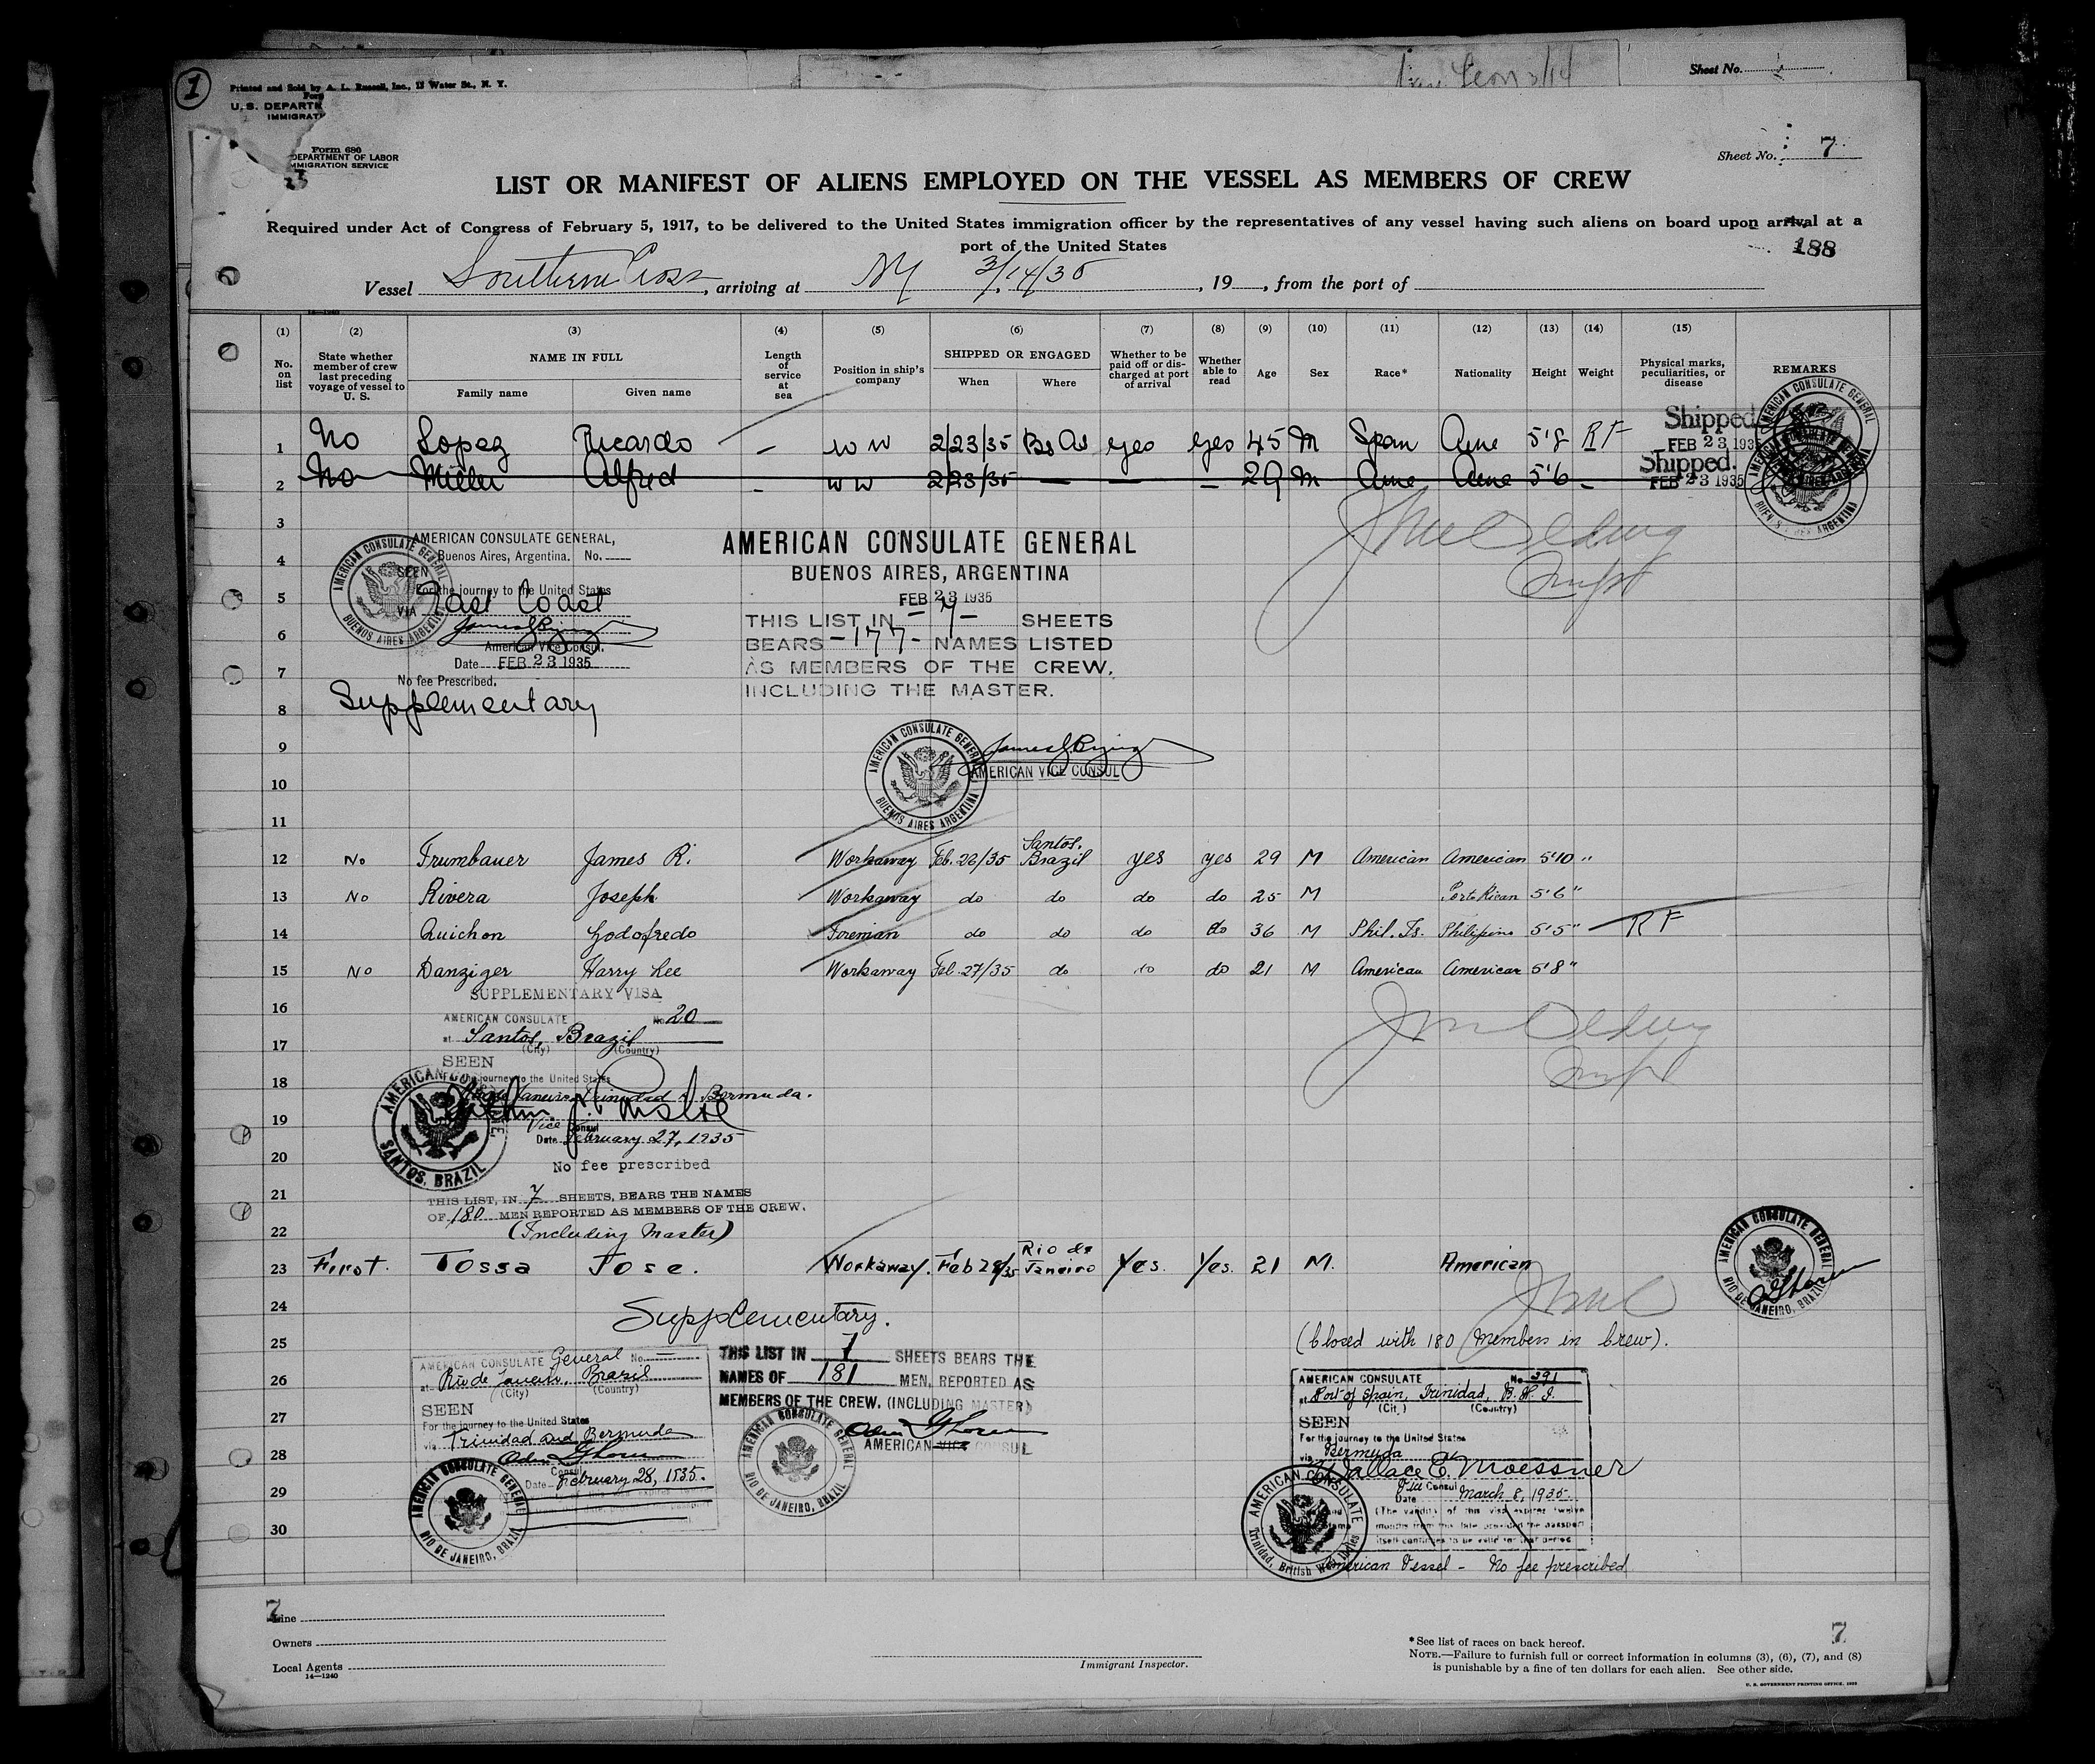 1
Printed and Sold by A. L. Russell, Inc., 13 Water St., N. Y.
Sheet No.
Form
U. S. DEPARTE
IMMIGRATI
Form 680
DEPARTMENT OF LABOR
MMIGRATION SERVICE
Sheet No. 7
LIST OR MANIFEST OF ALIENS EMPLOYED ON THE VESSEL AS MEMBERS OF CREW
Required under Act of Congress of February 5, 1917, to be delivered to the United States immigration officer by the representatives of any vessel having such aliens on board upon arrival at a
port of the United States
188
Vessel Southern Cross, arriving at NY 3/14/35, 19, from the port of
(1) (2) (3) (4) (5) (6) (7) (8) (9) (10) (11) (12) (13) (14) (15)
No. on list
State whether member of crew last preceding voyage of vessel to U. S.
NAME IN FULL
Family name
Given name
Length of service at sea
Position in ship's company
SHIPPED OR ENGAGED
When
Where
Whether to be paid off or discharged at port of arrival
Whether able to read
Age
Sex
Race*
Nationality
Height
Weight
Physical marks, peculiarities, or disease
REMARKS
1 No Lopez Ricardo - WW 2/23/35 Bs As yes yes 45 M Span Ame 5'8 RF Shipped FEB 23 1935
2 No Miller Alfred - WW 2/23/35 - - - 29 M Ame Ame 5'6 - Shipped. FEB 23 1935
AMERICAN CONSULATE GENERAL
BUENOS AIRES ARGENTINA
3
4
5
6
7
8
9
10
11
AMERICAN CONSULATE GENERAL,
Buenos Aires, Argentina. No.
SEEN
For the journey to the United States
VIA East Coast
American Vice Consul.
Date FEB 23 1935
No fee Prescribed.
Supplementary
AMERICAN CONSULATE GENERAL
BUENOS AIRES ARGENTINA
AMERICAN CONSULATE GENERAL
BUENOS AIRES, ARGENTINA
FEB 23 1935
THIS LIST IN -7- SHEETS
BEARS -177- NAMES LISTED
AS MEMBERS OF THE CREW,
INCLUDING THE MASTER.
AMERICAN VICE CONSUL
AMERICAN CONSULATE GENERAL
BUENOS AIRES ARGENTINA
12 No Trumbauer James R. Workaway Feb. 26/35 Santos, Brazil yes yes 29 M American American 5'10"
13 No Rivera Joseph Workaway do do do do 25 M Porto Rican 5'6"
14 Quichon Godofredo Fireman do do do do 36 M Phil. Is. Philippine 5'5" RF
15 No Danziger Harry Lee Workaway Feb. 27/35 do do do 21 M American American 5'8"
16
17
18
19
20
21
22
SUPPLEMENTARY VISA
AMERICAN CONSULATE No 20
at Santos, Brazil
(City) (Country)
SEEN
For the journey to the United States
Trinidad & Bermuda.
Vice Consul
Date February 27, 1935
No fee prescribed
AMERICAN CONSULATE
SANTOS, BRAZIL
THIS LIST, IN 7 SHEETS, BEARS THE NAMES
OF 180 MEN REPORTED AS MEMBERS OF THE CREW.
(Including Master)
23 First. Tossa Jose. Workaway. Feb 28/35 Rio de Janeiro Yes. Yes. 21 M. American
AMERICAN CONSULATE GENERAL
RIO DE JANEIRO, BRAZIL
24
25
26
27
28
29
30
Supplementary.
AMERICAN CONSULATE General No. -
at Rio de Janeiro, Brazil
(City) (Country)
SEEN
For the journey to the United States
via Trinidad and Bermuda
Consul
Date February 28, 1935.
AMERICAN CONSULATE GENERAL
RIO DE JANEIRO, BRAZIL
THIS LIST IN 7 SHEETS BEARS THE
NAMES OF 181 MEN, REPORTED AS
MEMBERS OF THE CREW. (INCLUDING MASTER)
AMERICAN VICE CONSUL
AMERICAN CONSULATE GENERAL
RIO DE JANEIRO, BRAZIL
(Closed with 180 Members in Crew).
AMERICAN CONSULATE No 391
at Port of Spain, Trinidad, B. W. I.
(City) (Country)
SEEN
For the journey to the United States
via Bermuda
Wallace E. Moessner
Vice Consul
Date March 8, 1935.
(The validity of this visa expires twelve
months from this date provided the passport
itself continues to be valid for that period
American Vessel - No fee prescribed
AMERICAN CONSULATE
Trinidad, British West Indies
7
Line
Owners
Local Agents
14-1240
Immigrant Inspector.
7
*See list of races on back hereof.
NOTE.—Failure to furnish full or correct information in columns (3), (6), (7), and (8)
is punishable by a fine of ten dollars for each alien. See other side.
U. S. GOVERNMENT PRINTING OFFICE